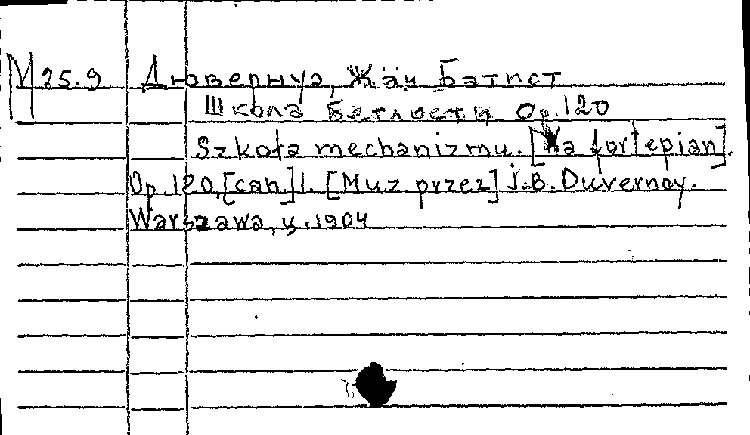 М25.9 Дювернуа, Жан Батист
Школа беглости Op.120
Szkoła mechanizmu. [Na fortepian].
Op.120,[cah.]1. [Muz przez] J.B. Duvernoy.
Warszawa, ц.1904